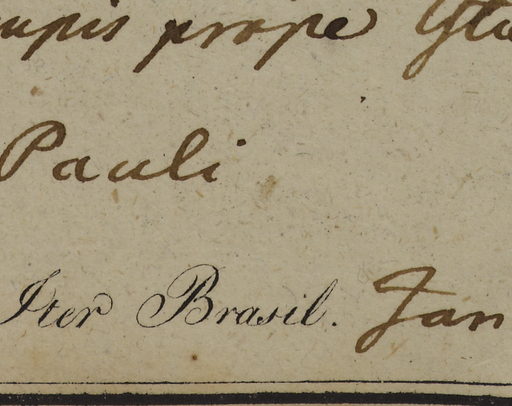 upis prope Ytu
Pauli
Iter Brasil. Jan